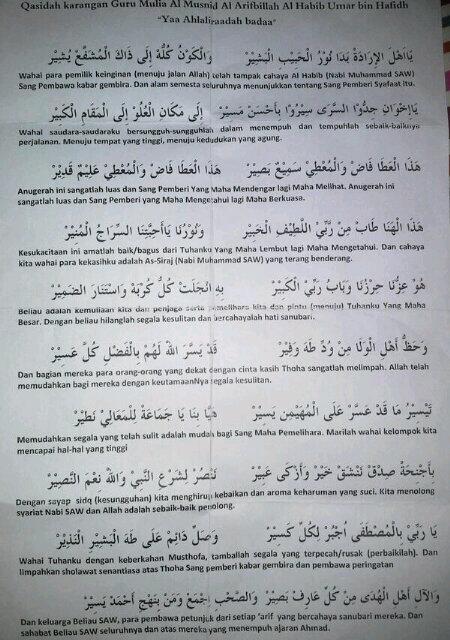 Qasidah karangan Guru Mulia Al Musnid Al Arifbillah Al Habib Umar bin Hafidh
"Yaa Ahlaliraadah badaa"
يَااَهْلَ الْإِرَادَةْ بَدَا نُوْرُ الْحَبِيْبِ الْبَشِيْرْ وَالْكَوْنُ كُلُّهْ إِلَى ذَاكَ الْمُشَفَّعْ يُشِيْرْ
Wahai para pemilik keinginan (menuju jalan Allah) telah tampak cahaya Al Habib (Nabi Muhammad SAW)
Sang Pembawa kabar gembira. Dan alam semesta seluruhnya menunjukkan tentang Sang Pemberi Syafaat itu.
يَاإِخْوَانِ جِدُّوْا السُّرَى سِيْرُوْا بِأَحْسَنْ مَسِيْرْ إِلَى مَكَانِ الْعُلُوْ إِلَى الْمَقَامِ الْكَبِيْرْ
Wahai saudara-saudaraku bersungguh-sungguhlah dalam menempuh dan tempuhlah sebaik-baiknya
perjalanan. Menuju tempat yang tinggi, menuju kedudukan yang agung.
هَذَا الْعَطَا فَاضْ وَالْمُعْطِيْ سَمِيْعٌ بَصِيْرْ هَذَا الْعَطَا فَاضْ وَالْمُعْطِيْ عَلِيْمٌ قَدِيْرْ
Anugerah ini sangatlah luas dan Sang Pemberi Yang Maha Mendengar lagi Maha Melihat. Anugerah ini
sangatlah luas dan Sang Pemberi yang Maha Mengetahui lagi Maha Berkuasa.
هَذَا الْهَنَا طَابْ مِنْ رَبِّيْ اللَّطِيْفِ الْخَبِيْرْ وَنُوْرُنَا يَاأَحِبَّتِنَا السِّرَاجُ الْمُنِيْرْ
Kesukacitaan ini amatlah baik/bagus dari Tuhanku Yang Maha Lembut lagi Maha Mengetahui. Dan cahaya
kita wahai para kekasihku adalah As-Siraj (Nabi Muhammad SAW) yang terang benderang.
هُوْ عِزُّنَا حِرْزُنَا وَبَابُ رَبِّيْ الْكَبِيْرْ بِهِ انْجَلَتْ كُلُّ كُرْبَةْ وَاسْتَنَارَ الضَّمِيْرْ
Beliau adalah kemuliaan kita dan penjaga serta pemelihara kita dan pintu (menuju) Tuhanku Yang Maha
Besar. Dengan beliau hilanglah segala kesulitan dan bercahayalah hati sanubari.
وَحَظُّ أَهْلِ الْوَلَا مِنْ وُدِّ طَهَ وَفِيْرْ قَدْ يَسَّرَ اللهُ لَهُمْ بِالْفَضْلِ كُلَّ عَسِيْرْ
Dan bagian mereka para orang-orang yang dekat dengan cinta kasih Thoha sangatlah melimpah. Allah telah
memudahkan bagi mereka dengan keutamaanNya segala kesulitan.
تَيْسِيْرُ مَا قَدْ عَسَرْ عَلَى الْمُهَيْمِنِ يَسِيْرْ هَيَّا بِنَا يَا جَمَاعَةْ لِلْمَعَالِيْ نَطِيْرْ
Memudahkan segala yang telah sulit adalah mudah bagi Sang Maha Pemelihara. Marilah wahai kelompok kita
mencapai hal-hal yang tinggi
بِأَجْنِحَةْ صِدْقْ نَنْشَقْ خَيْرْ وَأَزْكَى عَبِيْرْ نَنْصُرْ لِشَرْعِ النَّبِيْ وَاللهُ نِعْمَ النَّصِيْرْ
Dengan sayap sidq (kesungguhan) kita menghirup kebaikan dan aroma keharuman yang suci. Kita menolong
syariat Nabi SAW dan Allah adalah sebaik-baik penolong.
يَا رَبِّيْ بِالْمُصْطَفَى اُجْبُرْ لِكُلِّ كَسِيْرْ وَصَلِّ دَائِمْ عَلَى طَهَ الْبَشِيْرِ النَّذِيْرْ
Wahai Tuhanku dengan keberkahan Musthofa, tamballah segala yang terpecah/rusak (perbaikilah). Dan
limpahkan sholawat senantiasa atas Thoha Sang pemberi kabar gembira dan pembawa peringatan
وَالْآلِ أَهْلِ الْهُدَى مِنْ كُلِّ عَارِفْ بَصِيْرْ وَالصَّحْبِ اجْمَعْ وَمَنْ بِنَهْجِ أَحْمَدْ يَسِيْرْ
Dan keluarga Beliau SAW, para pembawa petunjuk dari setiap 'arif yang bercahaya sanubari mereka. Dan
sahabat Beliau SAW seluruhnya dan atas mereka yang menempuh ajaran Ahmad.